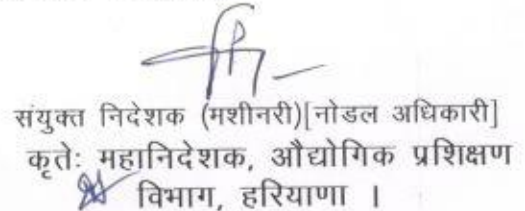 संयुक्त निदेशक (मशीनरी)[नोडल अधिकारी]
कृतेः महानिदेशक, औद्योगिक प्रशिक्षण
विभाग, हरियाणा ।